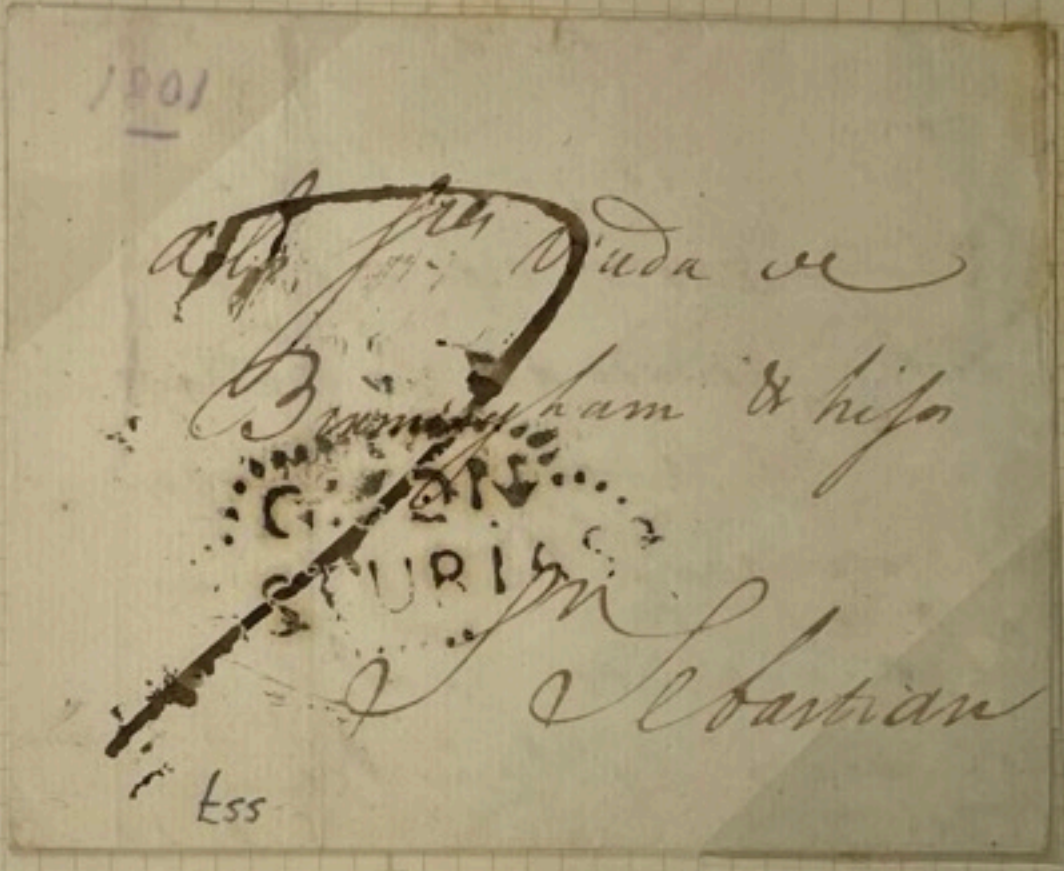 1801
A los Sres Viuda de
Birmingham & hijos
GIJON
ASTURIAS
Sn Sebastian
tss